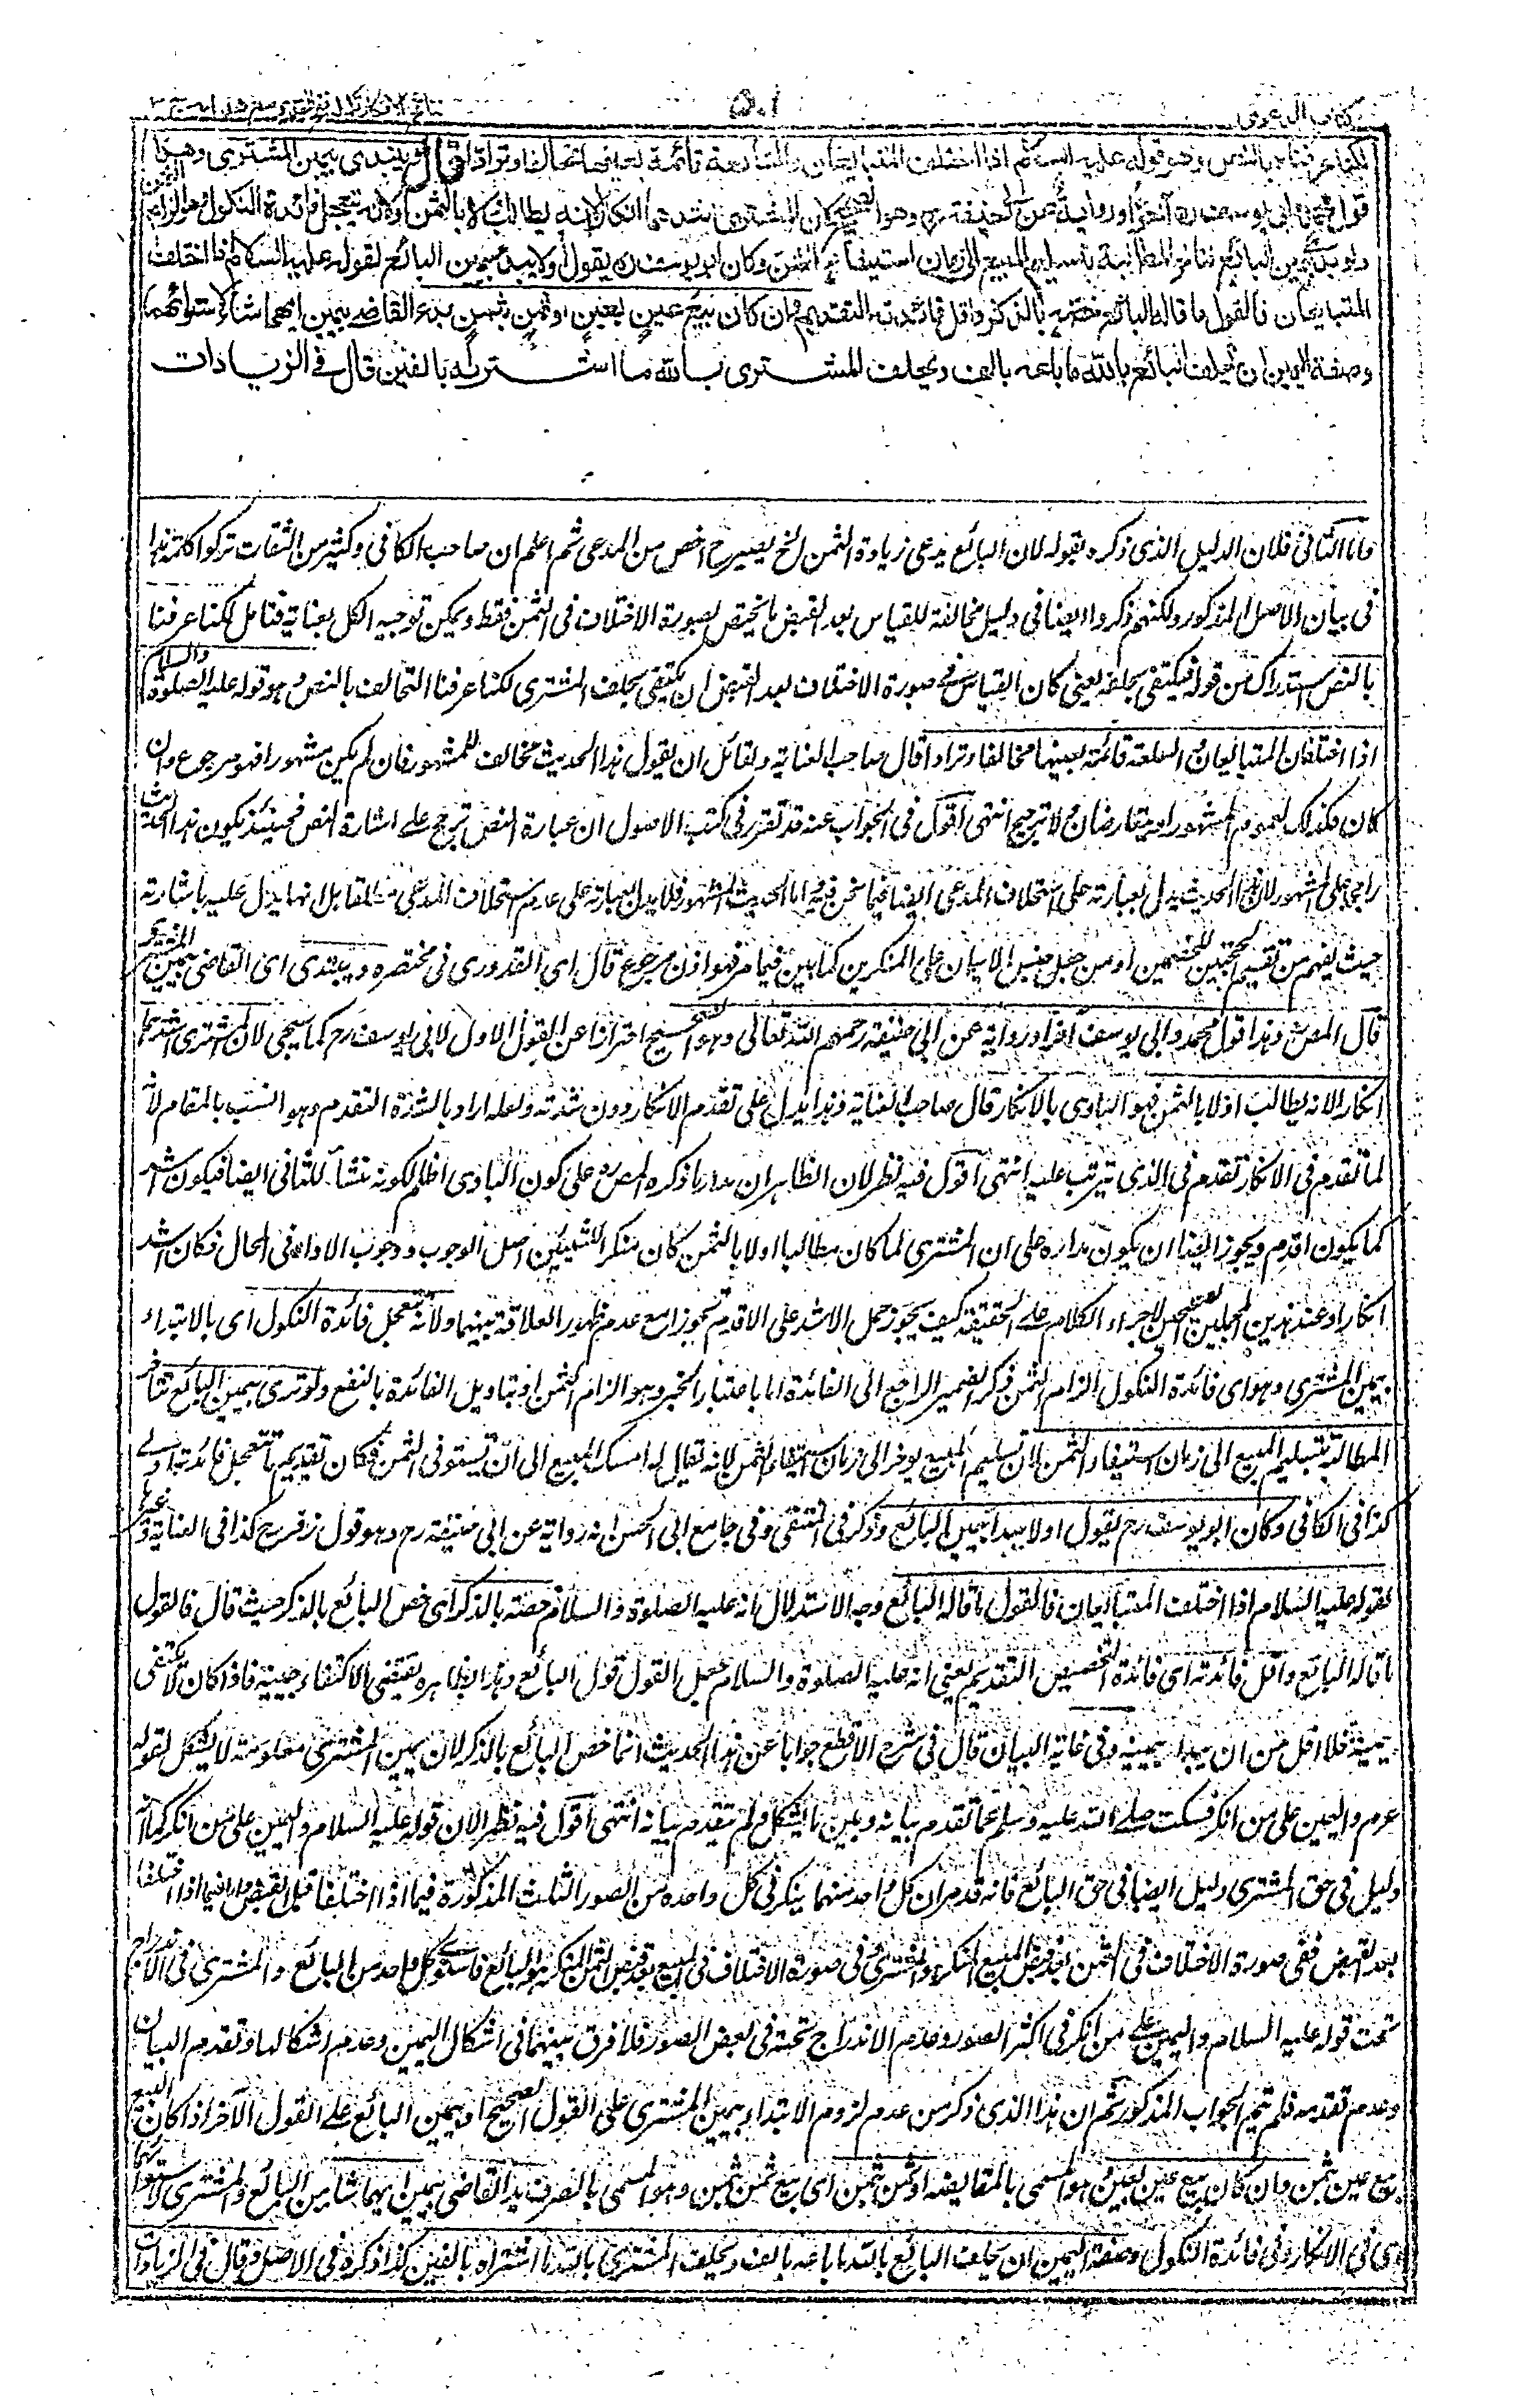 كتاب الدعوى
٥٠١
لكنا عرفناه بالنص وهو قوله عليه السلام اذا اختلف المتبايعان والسلعة قائمة بعينها تحالفا وترادا قال ويبتدئ بيمين المشترى وهذا
قول محمد وابى يوسف رح آخرا ورواية عن ابى حنيفة رح وهو الصحيح لان المشترى اشدهما انكارا لانه يطالب اولا بالثمن ولانه يتعجل فائدة النكول وهو الزام الثمن
ولو بدئ بيمين البائع تتأخر المطالبة بتسليم المبيع الى زمان استيفاء الثمن وكان ابو يوسف رح يقول اولا يبدأ بيمين البائع لقوله عليه السلام اذا اختلف
المتبايعان فالقول ما قاله البائع خصه بالذكر واقل فائدته التقديم وان كان بيع عين بعين او ثمن بثمن بدء القاضى بيمين ايهما شاء لاستوائهما
وصفة اليمين ان يحلف البائع بالله ما باعه بالف ويحلف المشترى بالله ما اشتراه بالفين قال فى الزيادات
واما الثانى فلان الدليل الذى ذكره بقوله لان البائع يدعى زيادة الثمن الخ يصير ح اخص من المدعى ثم اعلم ان صاحب الكافى وكثير من الثقات تركوا كلمة هذا
فى بيان الاصل المذكور ولكنهم ذكروا ايضا فى دليل مخالفة للقياس بعد القبض ما يختص بصورة الاختلاف فى الثمن فقط ويمكن توجيه الكل بعناية فتأمل لكنا عرفنا
بالنص استدراك من قوله فيكتفى بحلفه يعنى كان القياس فى صورة الاختلاف بعد القبض ان يكتفى بحلف المشترى لكنا عرفنا التحالف بالنص وهو قوله عليه الصلوة والسلام
اذا اختلف المتبايعان والسلعة قائمة بعينها تحالفا وترادا قال صاحب العناية ولقائل ان يقول هذا الحديث مخالف للمشهور فان لم يكن مشهورا فهو مرجوح وان
كان فكذلك لعموم المشهور او يتعارضان ولا ترجيح انتهى اقول فى الجواب عنه قد تقرر فى كتب الاصول ان عبارة النص ترجح على اشارة النص فحينئذ يكون هذا الحديث
راجحا على المشهور لان هذا الحديث يدل بعبارته على استحلاف المدعى ايضا فيما نحن فيه اما الحديث المشهور فلا يدل بعبارته على عدم استحلاف المدعى بل انما يدل عليه باشارته
حيث يفهم من تقسيم الحجتين للخصمين او من جعل جنس الايمان على المنكرين كما بين فيما مر فهو اذن مرجوح قال اى القدورى فى مختصره ويبتدى اى القاضى بيمين المشترى
قال المص رح وهذا قول محمد وابى يوسف آخرا ورواية عن ابى حنيفة رحمهم الله تعالى وهو الصحيح احترازا عن القول الاول لابى يوسف رح كما سيجئ لان المشترى اشدهما
انكارا لانه يطالب اولا بالثمن فهو البادى بالانكار قال صاحب العناية وهذا يدل على تقدم الانكار دون شدته ولعله اراد بالشدة التقدم وهو انسب بالمقام لانه
لما تقدم فى الانكار تقدم فى الذى يترتب عليه انتهى اقول فيه نظر لان الظاهر ان مدار ما ذكره المص رح على كون البادى اظلم لكونه منشأ للثانى ايضا فيكون اشد
كما يكون اقدم ويجوز ايضا ان يكون مداره على ان المشترى لما كان مطالبا اولا بالثمن كان منكرا للشيئين اصل الوجوب ووجوب الاداء فى الحال فكان اشد
انكارا وعند هذين المحملين الصحيحين لاجراء الكلام على الحقيقة كيف يجوز حمل الاشد على الاقدم تجوزا مع عدم ظهور العلاقة بينهما ولانه تتعجل فائدة النكول اى بالابتداء
بيمين المشترى وهو اى فائدة النكول الزام الثمن ذكر الضمير الراجع الى الفائدة اما باعتبار الخبر وهو الزام الثمن او بتاويل الفائدة بالنفع ولو بدى بيمين البائع تتأخر
المطالبة بتسليم المبيع الى زمان استيفاء الثمن لان تسليم المبيع يوخر الى زمان استيفاء الثمن لانه يقال له امسك المبيع الى ان تستوفى الثمن فكان تقديم ما تتعجل فائدته اولى
كذا فى الكافى وكان ابو يوسف رح يقول اولا يبدأ بيمين البائع وذكر فى المنتقى وفى جامع ابى الحسن انه رواية عن ابى حنيفة رح وهو قول زفر رح كذا فى العناية وغيرها
لقوله عليه السلام اذا اختلف المتبايعان فالقول ما قاله البائع وجه الاستدلال انه عليه الصلوة والسلام خصه بالذكر اى خص البائع بالذكر حيث قال فالقول
ما قاله البائع واقل فائدته اى فائدة التخصيص التقديم يعنى انه عليه الصلوة والسلام جعل القول قول البائع وهذا بظاهره يقتضى الاكتفاء بيمينه فاذا كان لا يكتفى
بيمينه فلا اقل من ان يبدأ بيمينه وفى غاية البيان قال فى شرح الاقطع جوابا عن هذا الحديث انما خص البائع بالذكر لان يمين المشترى معلومة لا تشكل لقوله
عرم واليمين على من انكر فسكت صلى الله عليه وسلم عما تقدم بيانه وبين ما يشكل ولم يتقدم بيانه انتهى اقول فيه نظر لان قوله عليه السلام واليمين على من انكر كما انه
دليل فى حق المشترى دليل ايضا فى حق البائع فانه قد مر ان كل واحد منهما ينكر فى كل واحدة من الصور الثلث المذكورة فيما اذا اختلفا قبل القبض واما فيما اذا اختلفا
بعد القبض ففى صورة الاختلاف فى الثمن بعد قبض المبيع المنكر هو المشترى وفى صورة الاختلاف فى المبيع بعد قبض الثمن المنكر هو البائع فاستوى كل واحد من البائع والمشترى فى الاندراج
تحت قوله عليه السلام واليمين على من انكر فى اكثر الصور وعدم الاندراج تحته فى بعض الصور فلا فرق بينهما فى اشكال اليمين وعدم اشكالها وتقدم البيان
وعدم تقدمه فلم يتم الجواب المذكور ثم ان هذا الذى ذكر من عدم لزوم الابتداء بيمين المشترى على القول الصحيح او بيمين البائع على القول الآخر اذا كان البيع
بيع عين بثمن وان كان بيع عين بعين هو المسمى بالمقايضة او ثمن بثمن اى بيع ثمن بثمن وهو المسمى بالصرف بدأ القاضى بيمين ايهما شاء من البائع والمشترى لاستوائهما
اى فى الانكار وفى فائدة النكول وصفة اليمين ان يحلف البائع بالله ما باعه بالف ويحلف المشترى بالله ما اشتراه بالفين كذا ذكره فى الاصل وقال فى الزيادات